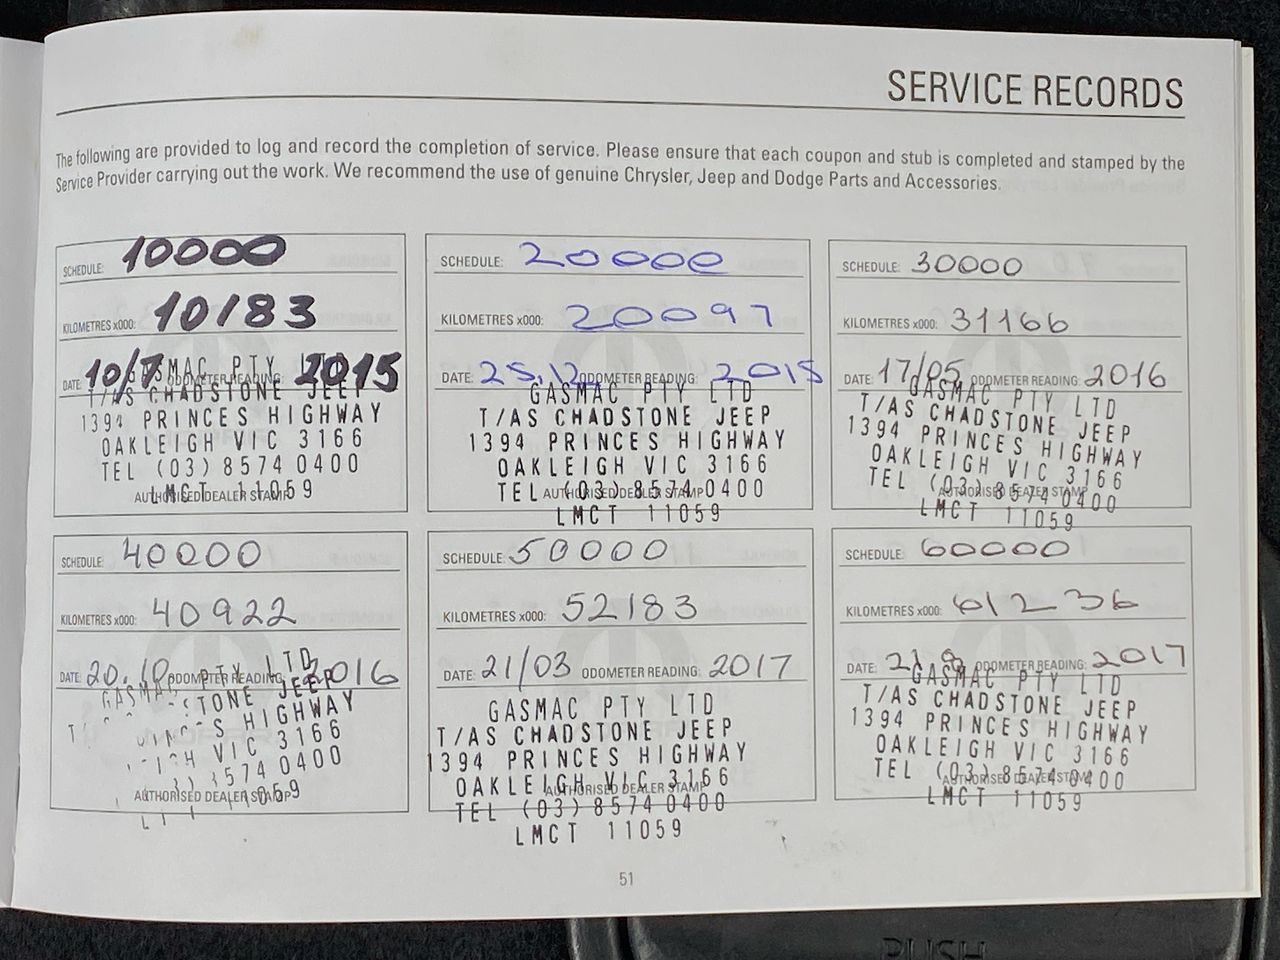 SERVICE RECORDS
The following are provided to log and record the completion of service. Please ensure that each coupon and stub is completed and stamped by the
Service Provider carrying out the work. We recommend the use of genuine Chrysler, Jeep and Dodge Parts and Accessories.
SCHEDULE: 10000
KILOMETRES x000: 10183
DATE: 10/7 ODOMETER READING: 2015
GASMAC PTY LTD
T/AS CHADSTONE JEEP
1394 PRINCES HIGHWAY
OAKLEIGH VIC 3166
TEL (03) 8574 0400
AUTHORISED DEALER STAMP
LMCT 11059
SCHEDULE: 20000
KILOMETRES x000: 20097
DATE: 25.12 ODOMETER READING: 2015
GASMAC PTY LTD
T/AS CHADSTONE JEEP
1394 PRINCES HIGHWAY
OAKLEIGH VIC 3166
TEL (03) 8574 0400
AUTHORISED DEALER STAMP
LMCT 11059
SCHEDULE: 30000
KILOMETRES x000: 31166
DATE: 17/05 ODOMETER READING: 2016
GASMAC PTY LTD
T/AS CHADSTONE JEEP
1394 PRINCES HIGHWAY
OAKLEIGH VIC 3166
TEL (03) 8574 0400
AUTHORISED DEALER STAMP
LMCT 11059
SCHEDULE: 40000
KILOMETRES x000: 40922
DATE: 20.10 ODOMETER READING: 2016
GASMAC PTY LTD
STONE JEEP
S HIGHWAY
VIC 3166
8574 0400
AUTHORISED DEALER STAMP
SCHEDULE: 50000
KILOMETRES x000: 52183
DATE: 21/03 ODOMETER READING: 2017
GASMAC PTY LTD
T/AS CHADSTONE JEEP
1394 PRINCES HIGHWAY
OAKLEIGH VIC 3166
AUTHORISED DEALER STAMP
TEL (03) 8574 0400
LMCT 11059
SCHEDULE: 60000
KILOMETRES x000: 61236
DATE: 21.8 ODOMETER READING: 2017
GASMAC PTY LTD
T/AS CHADSTONE JEEP
1394 PRINCES HIGHWAY
OAKLEIGH VIC 3166
TEL (03) 8574 0400
AUTHORISED DEALER STAMP
LMCT 11059
51
PUSH